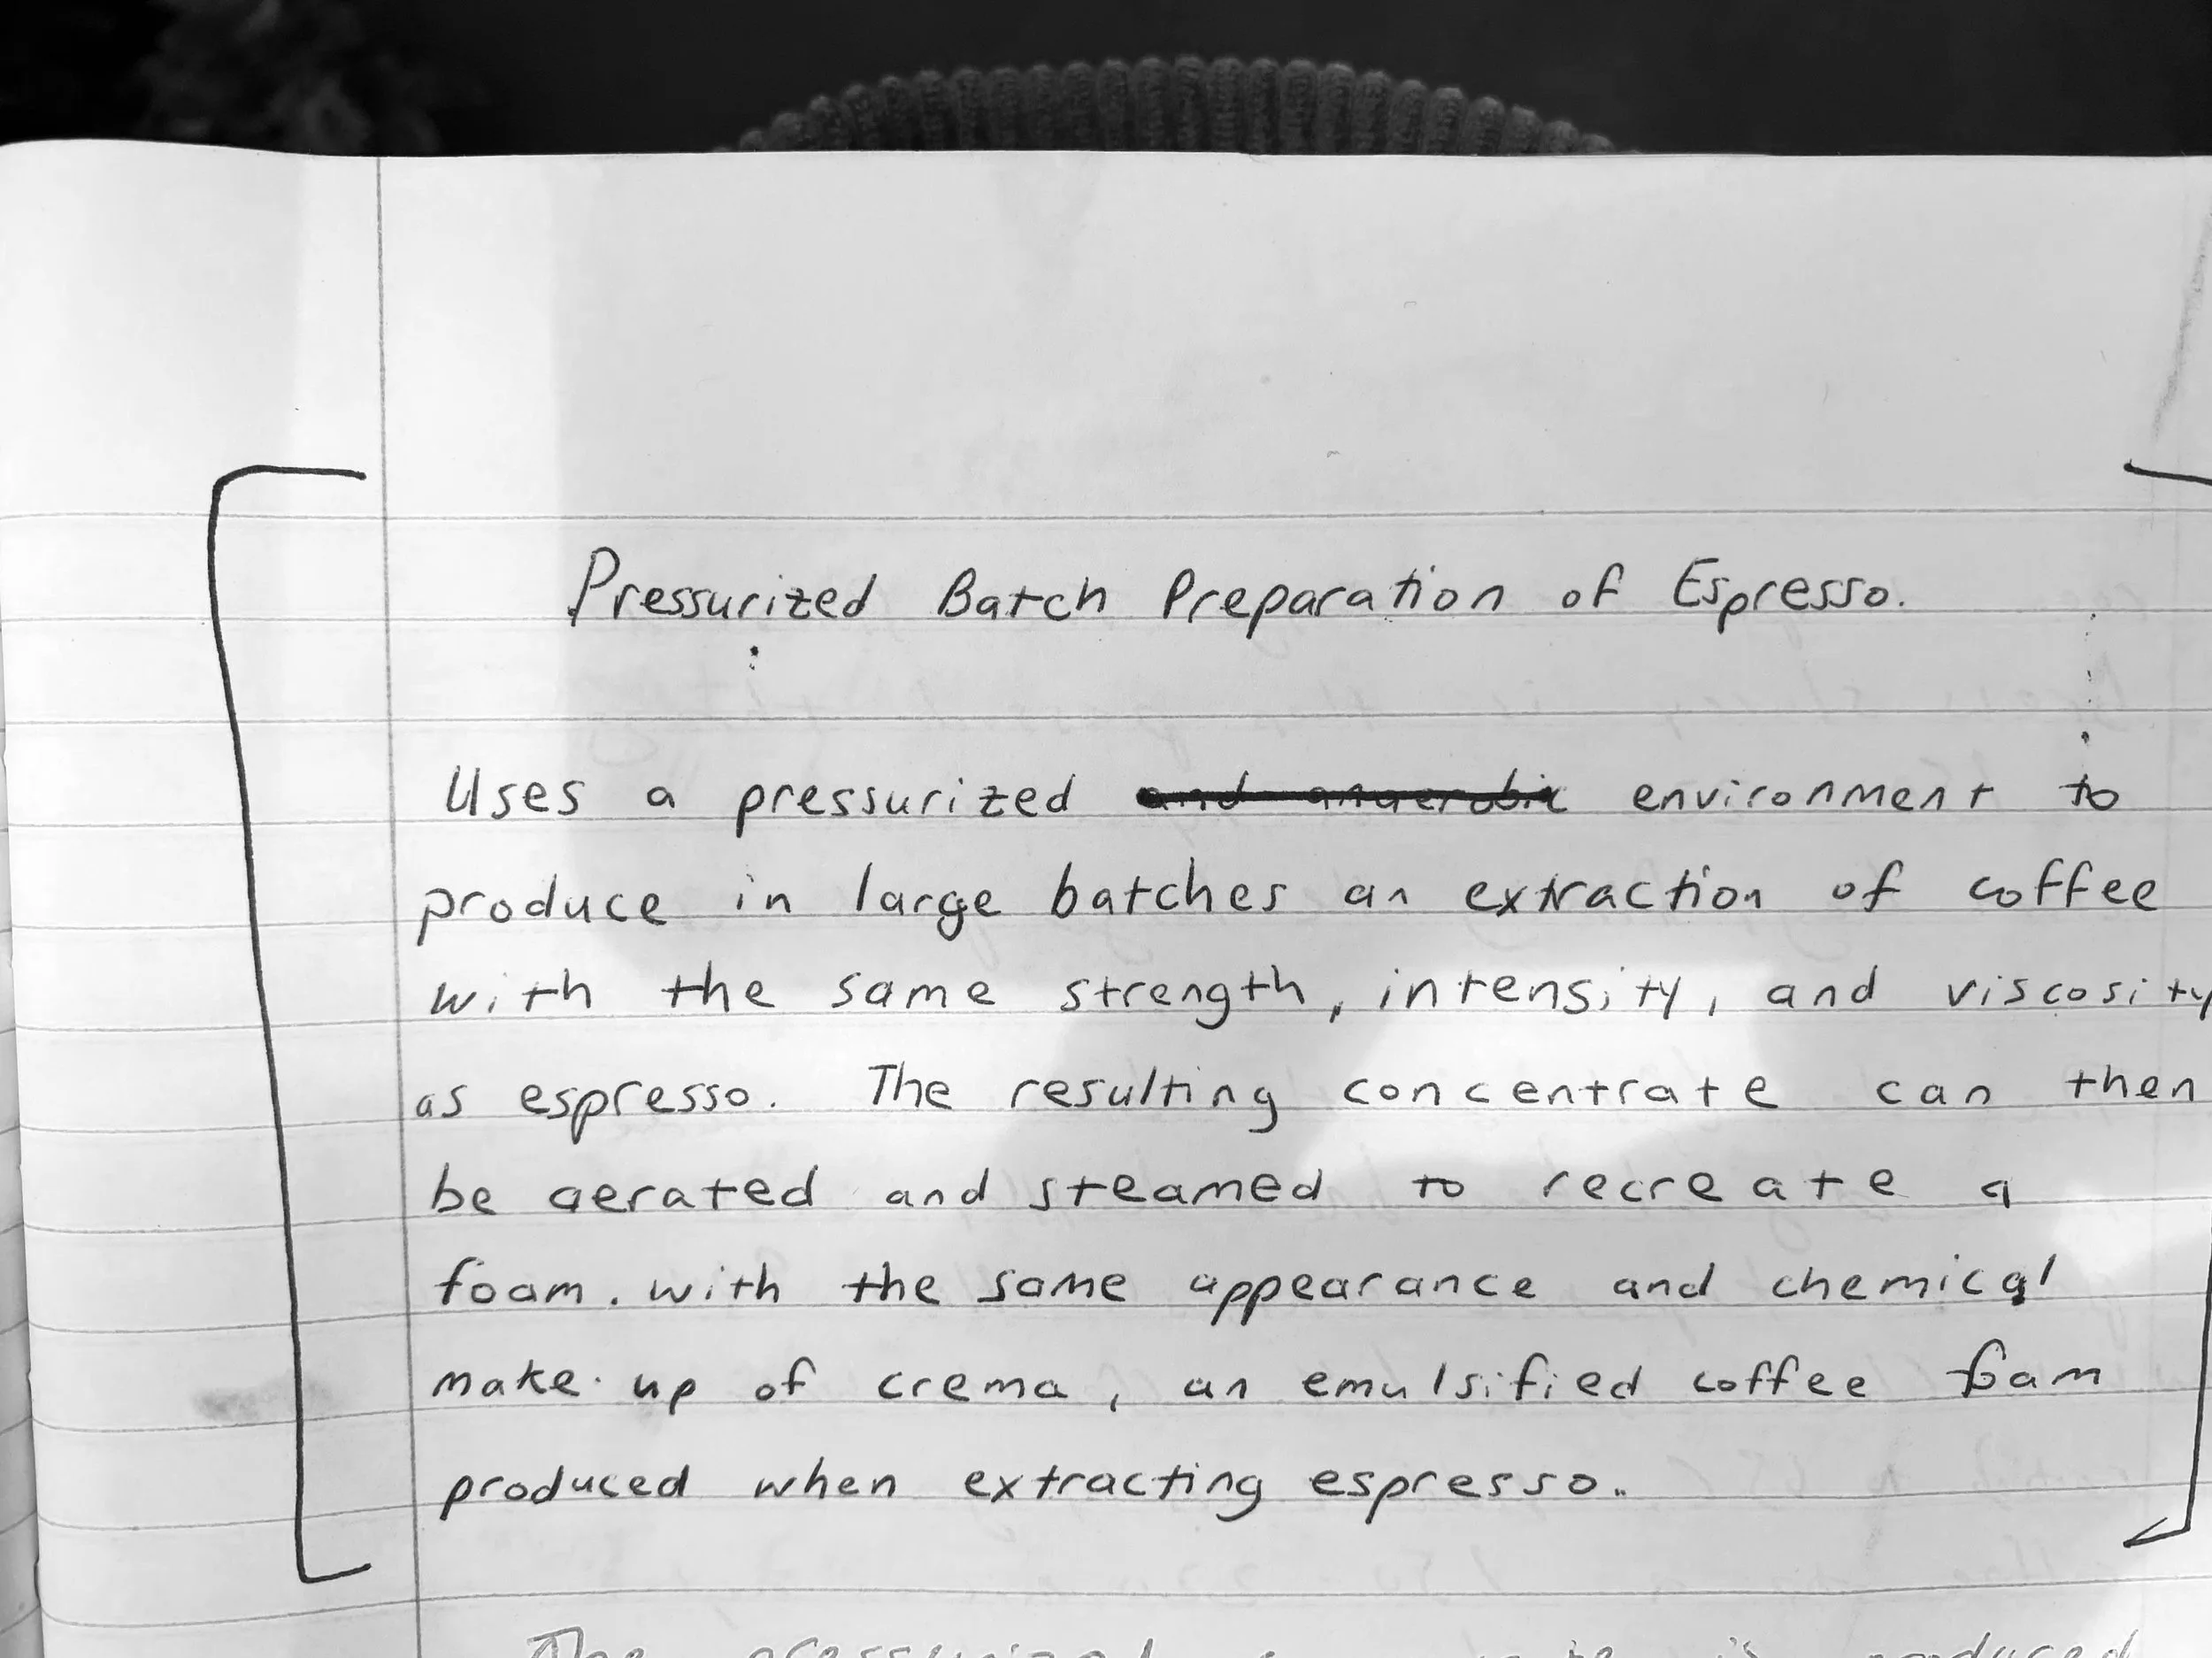 Pressurized Batch Preparation of Espresso.
Uses a pressurized and anaerobic environment to
produce in large batches an extraction of coffee
with the same strength, intensity, and viscosity
as espresso. The resulting concentrate can then
be aerated and steamed to recreate a
foam. with the same appearance and chemical
make-up of crema, an emulsified coffee foam
produced when extracting espresso..
The pressurized is produced